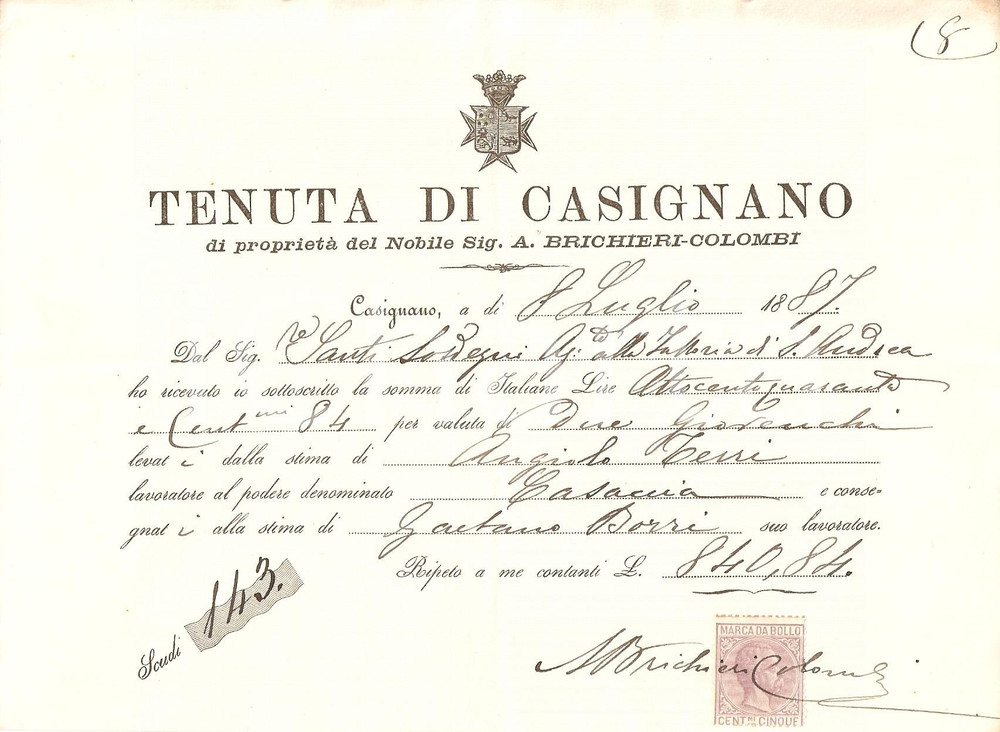 8
TENUTA DI CASIGNANO
di proprietà del Nobile Sig. A. BRICHIERI-COLOMBI
Casignano, a di 8 Luglio 1887.
Dal Sig.re Santi Sordegni Ag.to alla Fattoria di S. Andrea
ho ricevuto io sottoscritto la somma di Italiane Lire Ottocentoquaranta
e Centmi 84 per valuta di Due Giovenchi
levati dalla stima di Angiolo Terri
lavoratore al podere denominato Casaccia e conse-
gnati alla stima di Gaetano Borri suo lavoratore.
Ripeto a me contanti £. 840,84.
Scudi 143.
MARCA DA BOLLO
ABrichieri Colombi
CENT.MI CINQUE